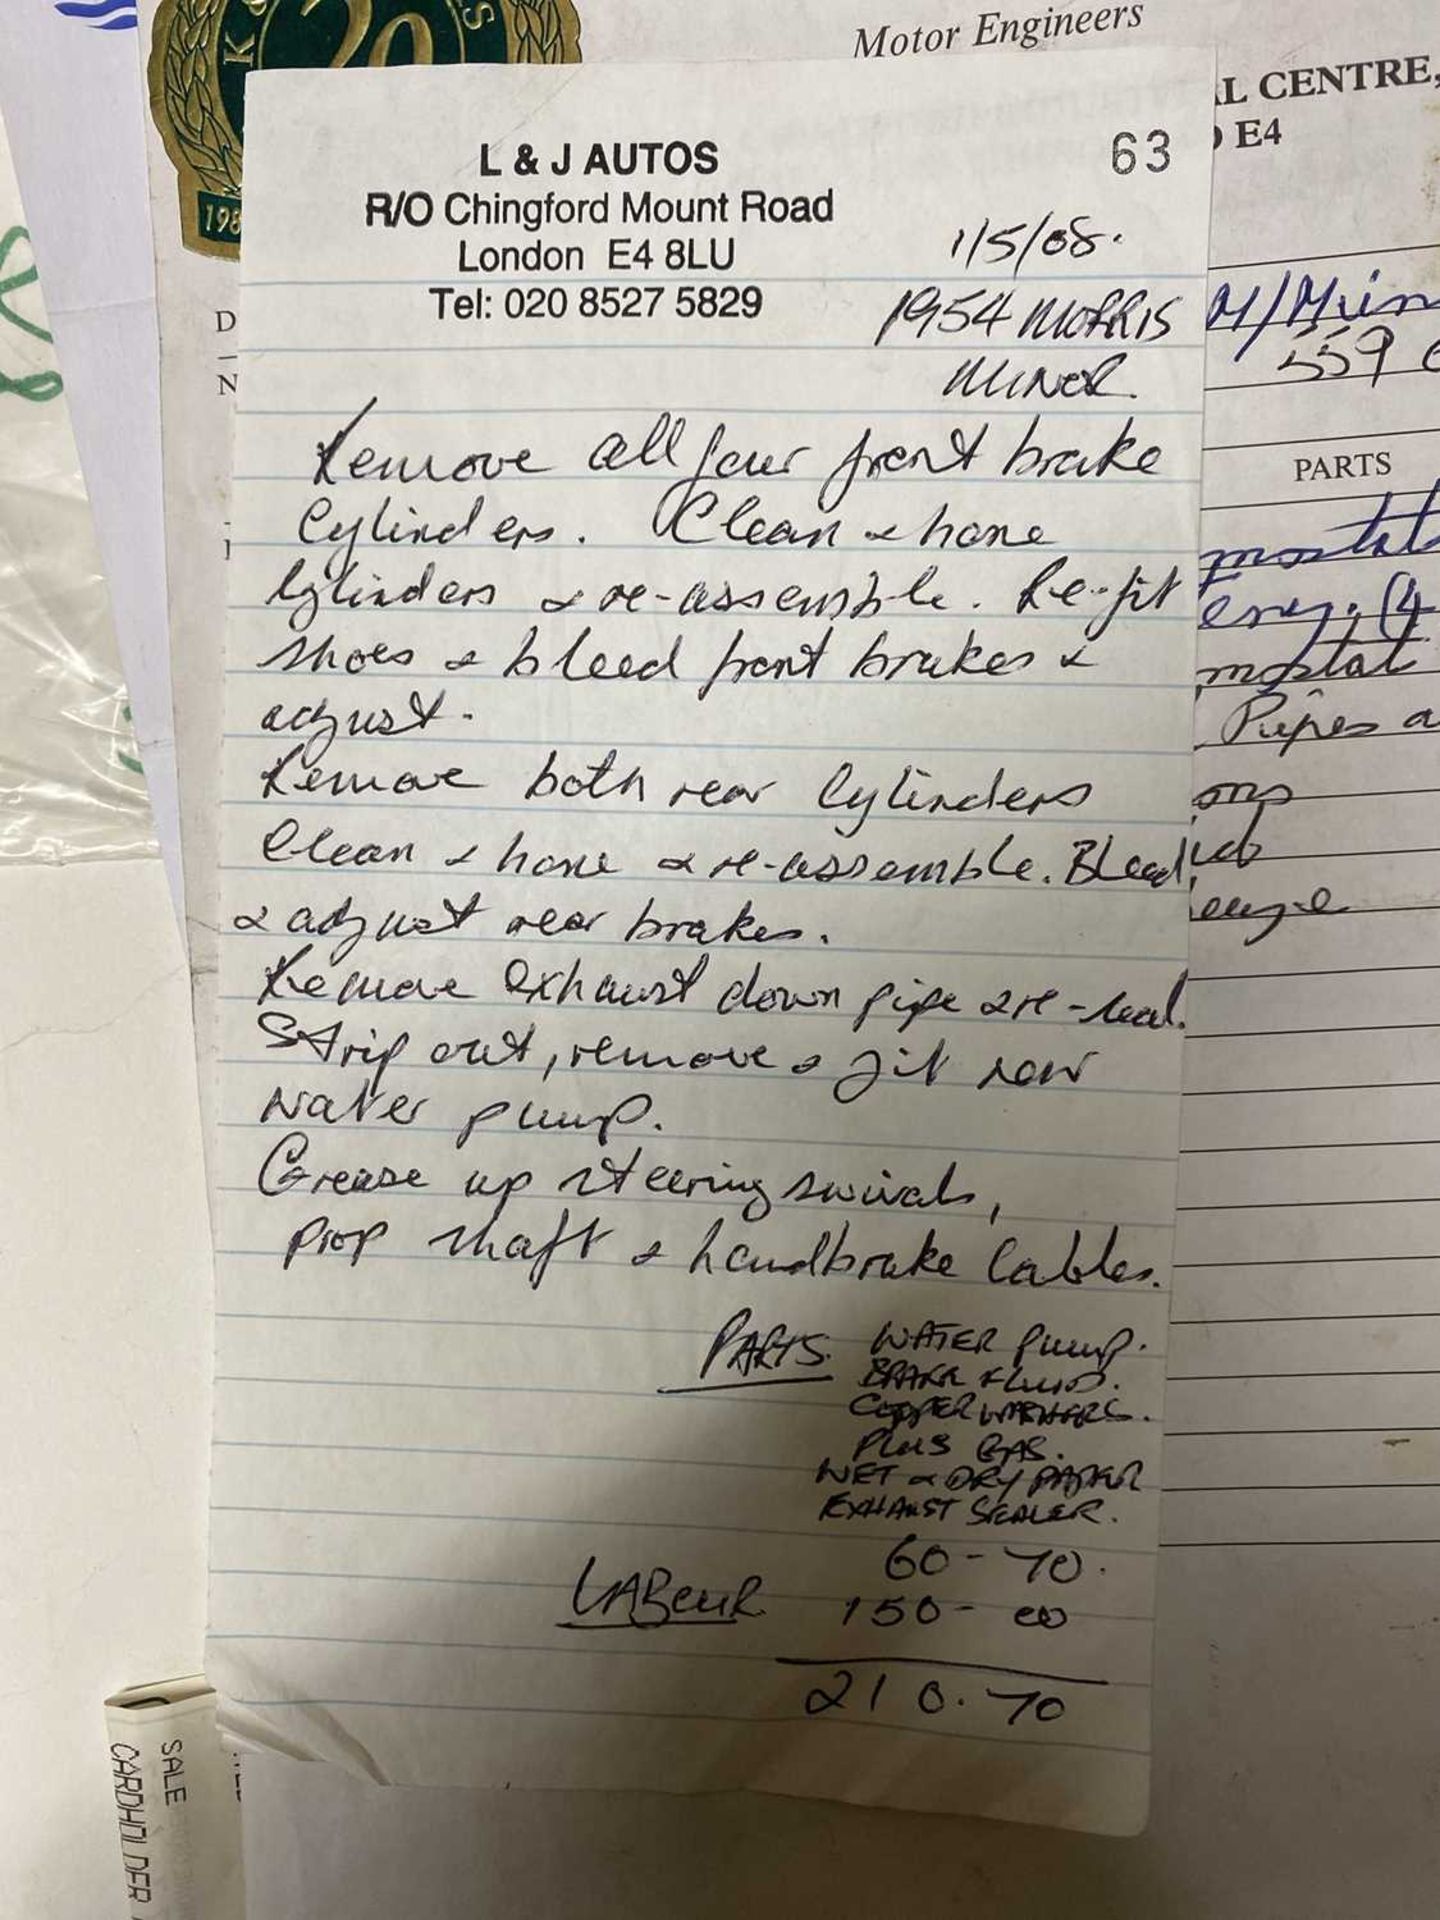 Motor Engineers
L CENTRE,
E4
20
198
L & J AUTOS
63
R/O Chingford Mount Road
London E4 8LU
Tel: 020 8527 5829
1/5/08.
1954 MORRIS
MINOR.
Remove all four front brake
Cylinders. Clean & hone
Cylinders & re-assemble. Re-fit
shoes & bleed front brakes &
adjust.
Remove both rear Cylinders
Clean & hone & re-assemble. Bleed
& adjust rear brakes.
Remove exhaust down pipe & re-seal.
Strip out, remove & fit new
water pump.
Grease up steering swivals,
prop shaft & handbrake Cables.
PARTS. WATER PUMP.
BRAKE FLUID.
COPPER WASHERS.
PLUS GAS.
WET & DRY PAPER
EXHAUST SEALER.
60-70.
LABOUR 150-00
210.70
D
N
M/Min
559
PARTS
mostat
(4
mostat
Pipes a
SALE
CARDHOLDER